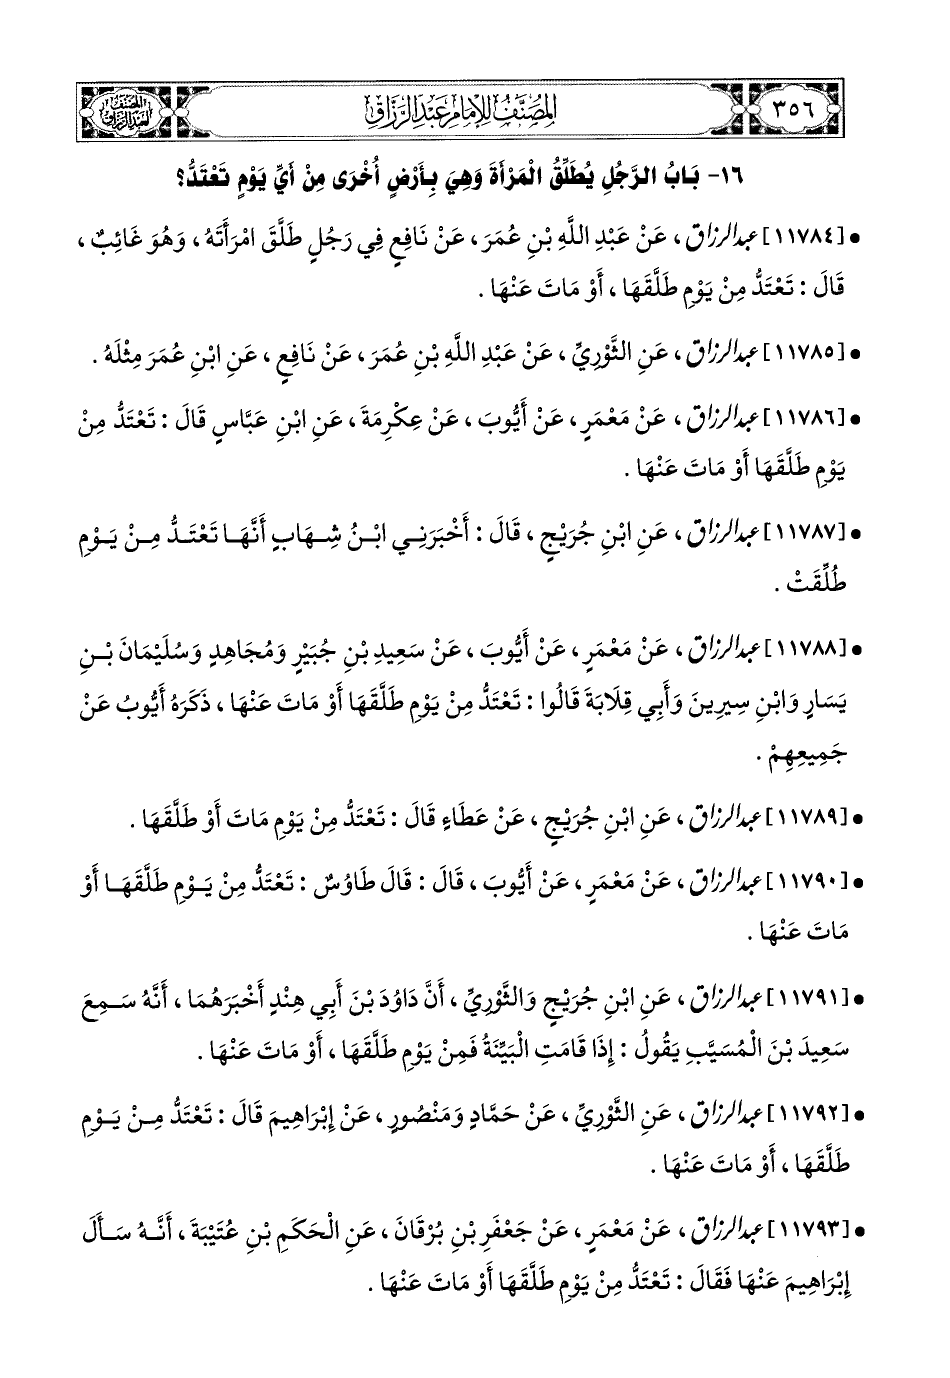 ٣٥٦
المصنف للإمام عبد الرزاق
المصنف
لعبد الرزاق
١٦- بَابُ الرَّجُلِ يُطَلِّقُ الْمَرْأَةَ وَهِيَ بِأَرْضٍ أُخْرَى مِنْ أَيِّ يَوْمٍ تَعْتَدُّ؟
• [١١٧٨٤] عبد الرزاق، عَنْ عَبْدِ اللَّهِ بْنِ عُمَرَ، عَنْ نَافِعٍ فِي رَجُلٍ طَلَّقَ امْرَأَتَهُ، وَهُوَ غَائِبٌ،
قَالَ : تَعْتَدُّ مِنْ يَوْمِ طَلَّقَهَا، أَوْ مَاتَ عَنْهَا.
• [١١٧٨٥] عبد الرزاق، عَنِ الثَّوْرِيِّ، عَنْ عَبْدِ اللَّهِ بْنِ عُمَرَ، عَنْ نَافِعٍ، عَنِ ابْنِ عُمَرَ مِثْلَهُ.
• [١١٧٨٦] عبد الرزاق، عَنْ مَعْمَرٍ، عَنْ أَيُّوبَ، عَنْ عِكْرِمَةَ، عَنِ ابْنِ عَبَّاسٍ قَالَ : تَعْتَدُّ مِنْ
يَوْمِ طَلَّقَهَا أَوْ مَاتَ عَنْهَا.
• [١١٧٨٧] عبد الرزاق، عَنِ ابْنِ جُرَيْجٍ، قَالَ : أَخْبَرَنِي ابْنُ شِهَابٍ أَنَّهَا تَعْتَدُّ مِنْ يَوْمِ
طُلِّقَتْ.
• [١١٧٨٨] عبد الرزاق، عَنْ مَعْمَرٍ، عَنْ أَيُّوبَ، عَنْ سَعِيدِ بْنِ جُبَيْرٍ وَمُجَاهِدٍ وَسُلَيْمَانَ بْنِ
يَسَارٍ وَابْنِ سِيرِينَ وَأَبِي قِلَابَةَ قَالُوا : تَعْتَدُّ مِنْ يَوْمِ طَلَّقَهَا أَوْ مَاتَ عَنْهَا، ذَكَرَهُ أَيُّوبُ عَنْ
جَمِيعِهِمْ.
• [١١٧٨٩] عبد الرزاق، عَنِ ابْنِ جُرَيْجٍ، عَنْ عَطَاءٍ قَالَ : تَعْتَدُّ مِنْ يَوْمِ مَاتَ أَوْ طَلَّقَهَا.
• [١١٧٩٠] عبد الرزاق، عَنْ مَعْمَرٍ، عَنْ أَيُّوبَ، قَالَ : قَالَ طَاوُسٌ : تَعْتَدُّ مِنْ يَوْمِ طَلَّقَهَا أَوْ
مَاتَ عَنْهَا.
• [١١٧٩١] عبد الرزاق، عَنِ ابْنِ جُرَيْجٍ وَالثَّوْرِيِّ، أَنَّ دَاوُدَ بْنَ أَبِي هِنْدٍ أَخْبَرَهُمَا، أَنَّهُ سَمِعَ
سَعِيدَ بْنَ الْمُسَيَّبِ يَقُولُ : إِذَا قَامَتِ الْبَيِّنَةُ فَمِنْ يَوْمِ طَلَّقَهَا، أَوْ مَاتَ عَنْهَا.
• [١١٧٩٢] عبد الرزاق، عَنِ الثَّوْرِيِّ، عَنْ حَمَّادٍ وَمَنْصُورٍ، عَنْ إِبْرَاهِيمَ قَالَ : تَعْتَدُّ مِنْ يَوْمِ
طَلَّقَهَا، أَوْ مَاتَ عَنْهَا.
• [١١٧٩٣] عبد الرزاق، عَنْ مَعْمَرٍ، عَنْ جَعْفَرِ بْنِ بُرْقَانَ، عَنِ الْحَكَمِ بْنِ عُتَيْبَةَ، أَنَّهُ سَأَلَ
إِبْرَاهِيمَ عَنْهَا فَقَالَ : تَعْتَدُّ مِنْ يَوْمِ طَلَّقَهَا أَوْ مَاتَ عَنْهَا.